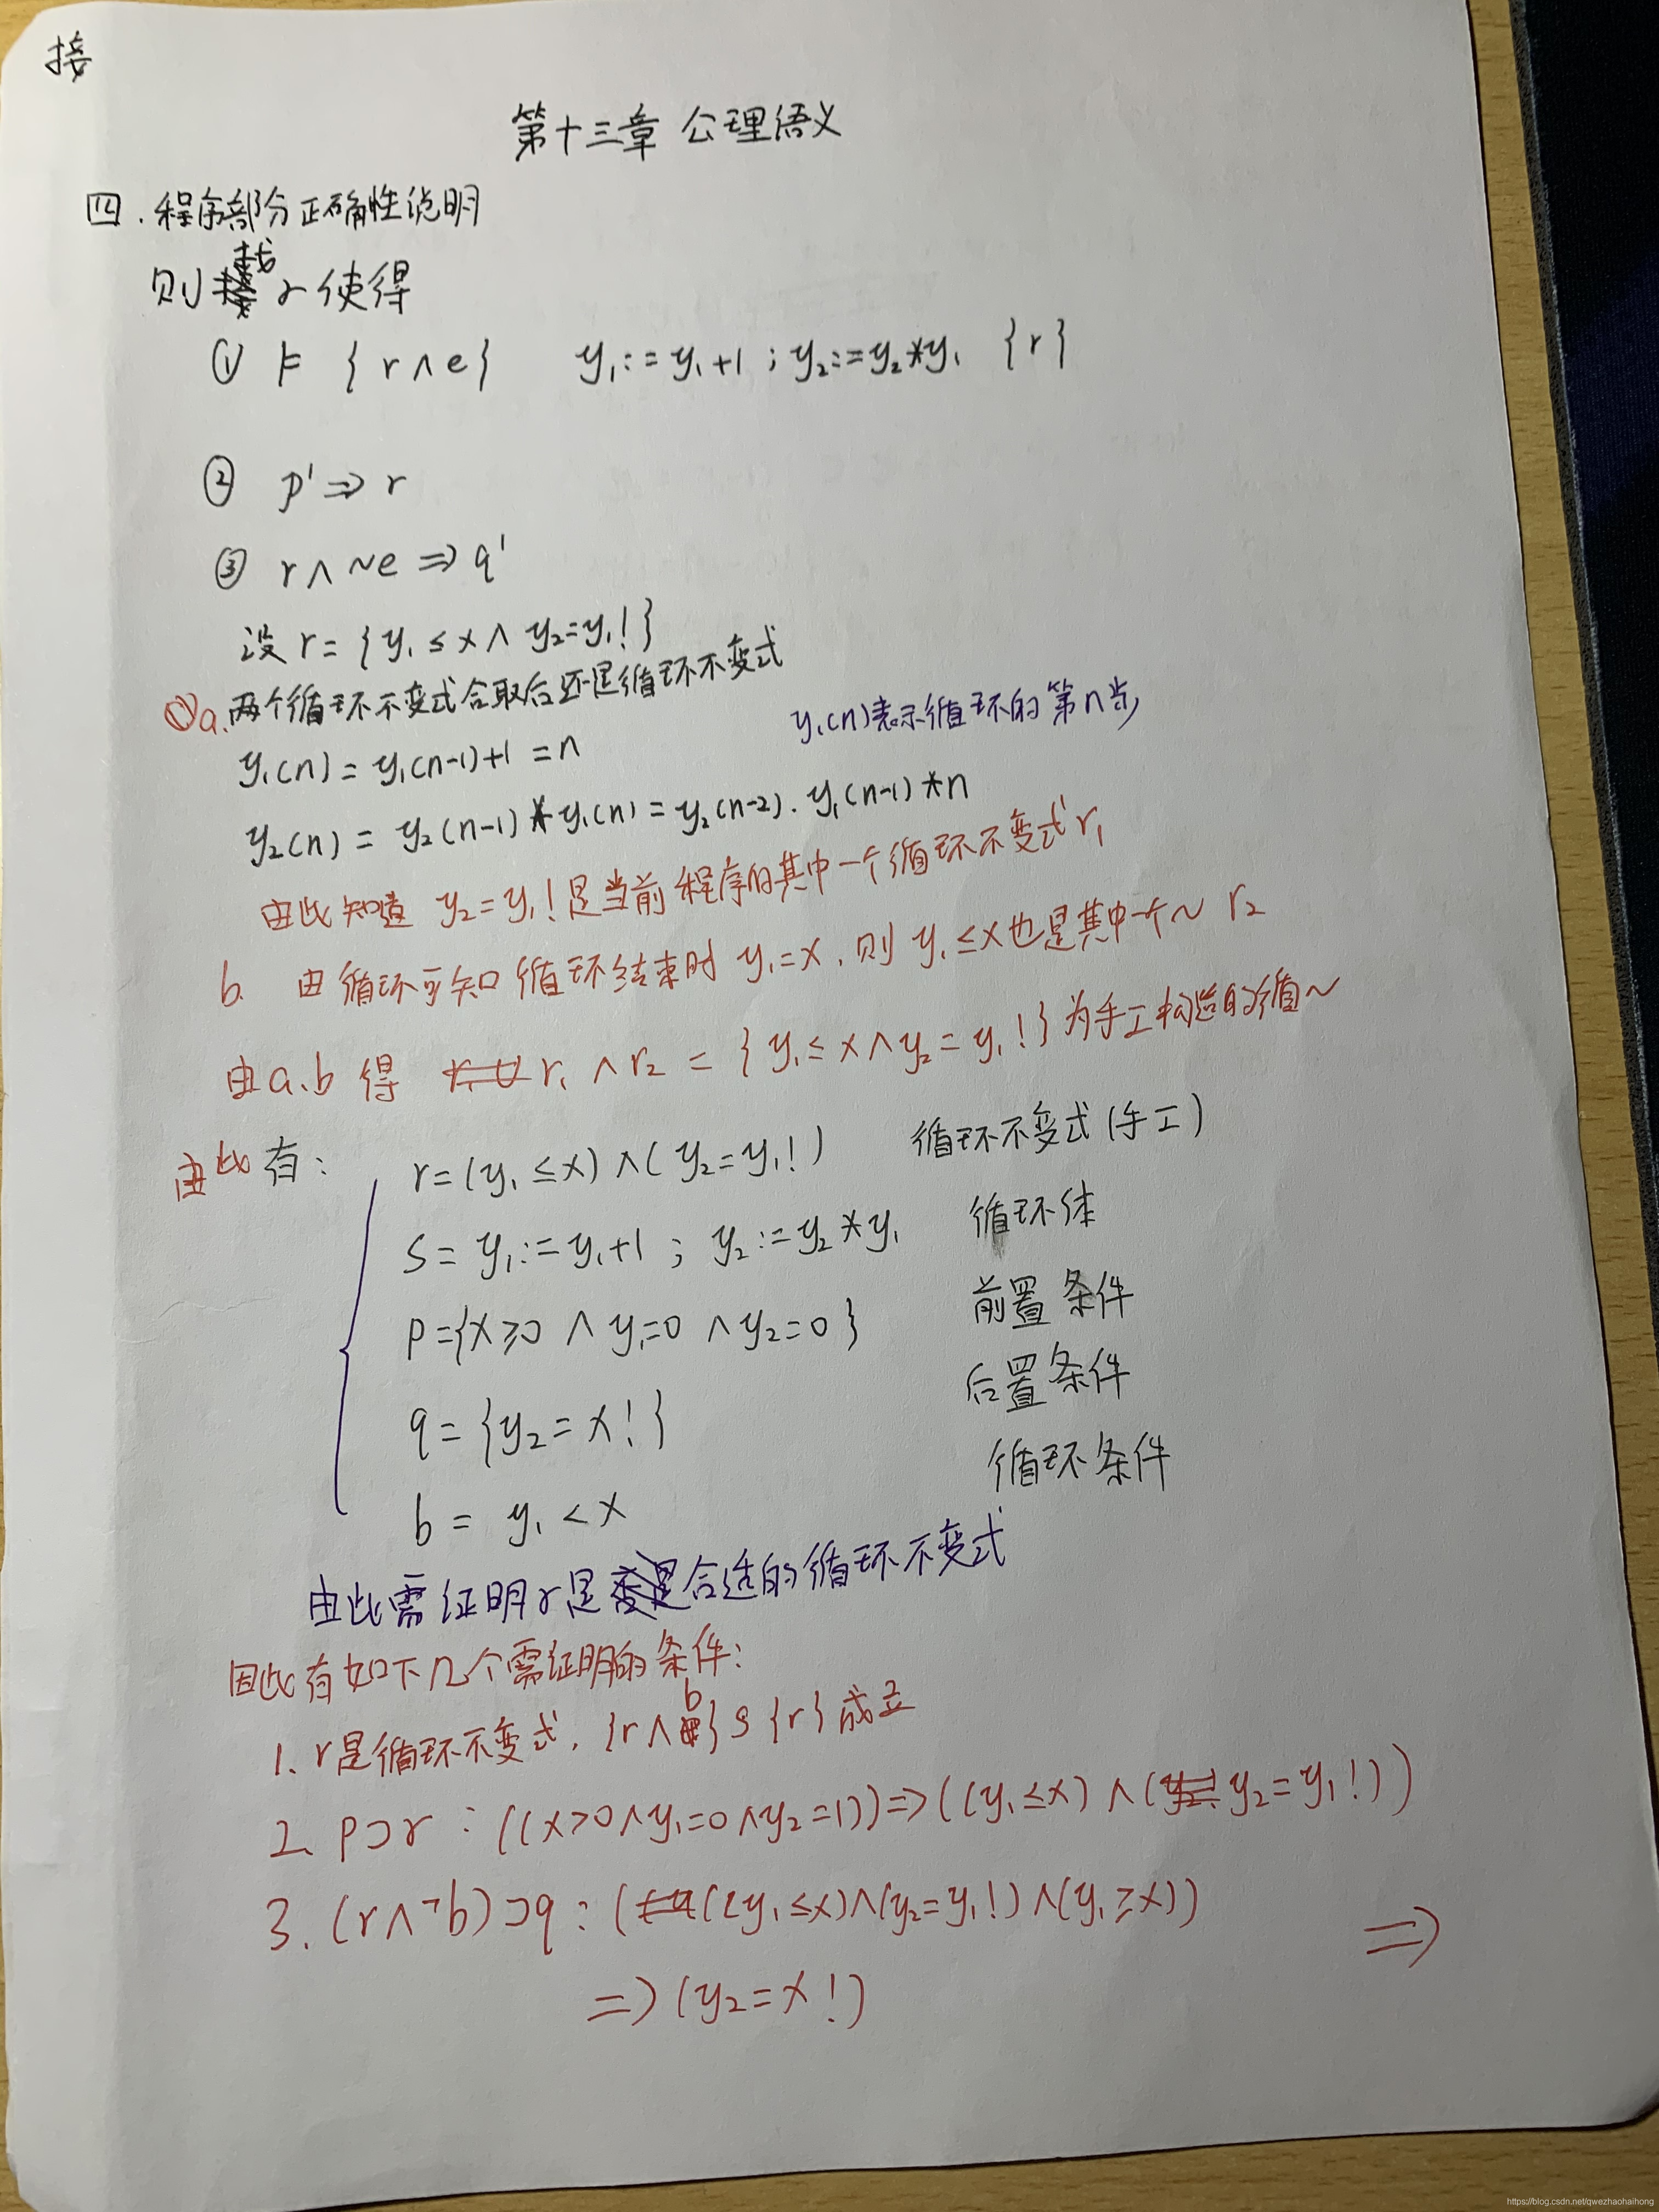 接
第十三章 公理语义
四.程序部分正确性说明
则找r使得
① ⊨ {r∧e} y₁:=y₁+1;y₂:=y₂*y₁ {r}
② p'⇒r
③ r∧~e⇒q'
设r={y₁≤x∧y₂=y₁!}
①a.两个循环不变式合取后还是循环不变式
y₁(n)表示循环的第n步
y₁(n)=y₁(n-1)+1=n
y₂(n)=y₂(n-1)*y₁(n)=y₂(n-2).y₁(n-1)*n
由此知道 y₂=y₁!是当前程序的其中一个循环不变式r₁
b. 由循环可知循环结束时 y₁=x,则 y₁≤x也是其中一个~ r₂
由a.b得 r₁∧r₂={y₁≤x∧y₂=y₁!}为手工构造的循~
由此有: r=(y₁≤x)∧(y₂=y₁!) 循环不变式(手工)
S=y₁:=y₁+1;y₂:=y₂*y₁ 循环体
P={x≥0∧y₁=0∧y₂=0} 前置条件
q={y₂=x!} 后置条件
b=y₁<x 循环条件
由此需证明r是合适的循环不变式
因此有如下几个需证明的条件:
1.r是循环不变式,{r∧b}S{r}成立
2.P⊃r:((x>0∧y₁=0∧y₂=1))⇒((y₁≤x)∧(y₂=y₁!))
3.(r∧¬b)⊃q:(((y₁≤x)∧(y₂=y₁!)∧(y₁≥x)) ⇒
⇒(y₂=x!)
https://blog.csdn.net/qwezhaohaihong